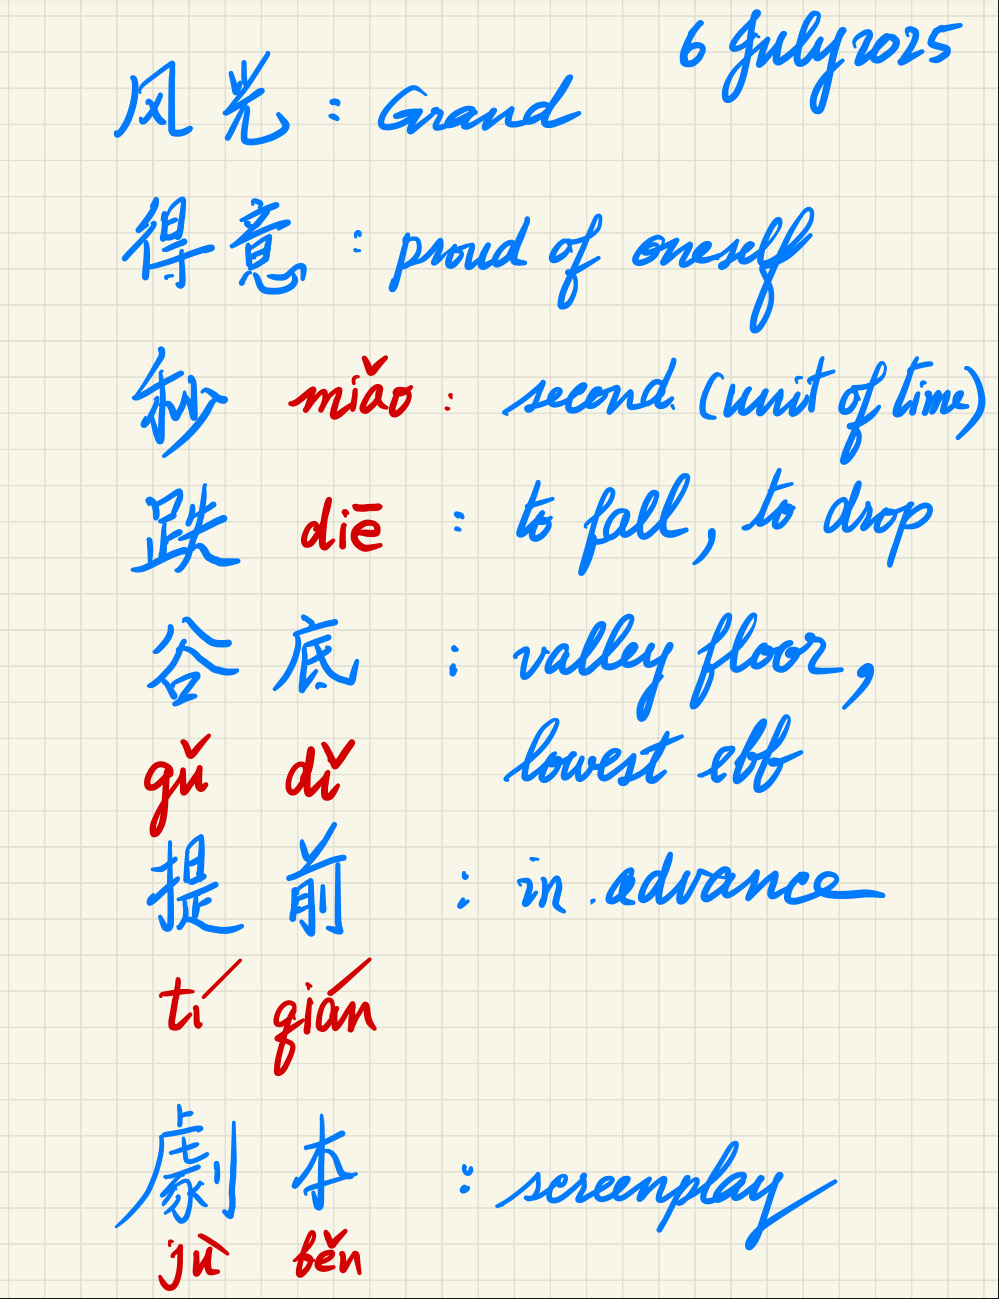 6 July 2025
风光 : Grand
得意 : proud of oneself
秒 miǎo : second (unit of time)
跌 diē : to fall, to drop
谷底 : valley floor,
gǔ dǐ lowest ebb
提前 : in advance
tí qián
劇本 : screenplay
jù běn